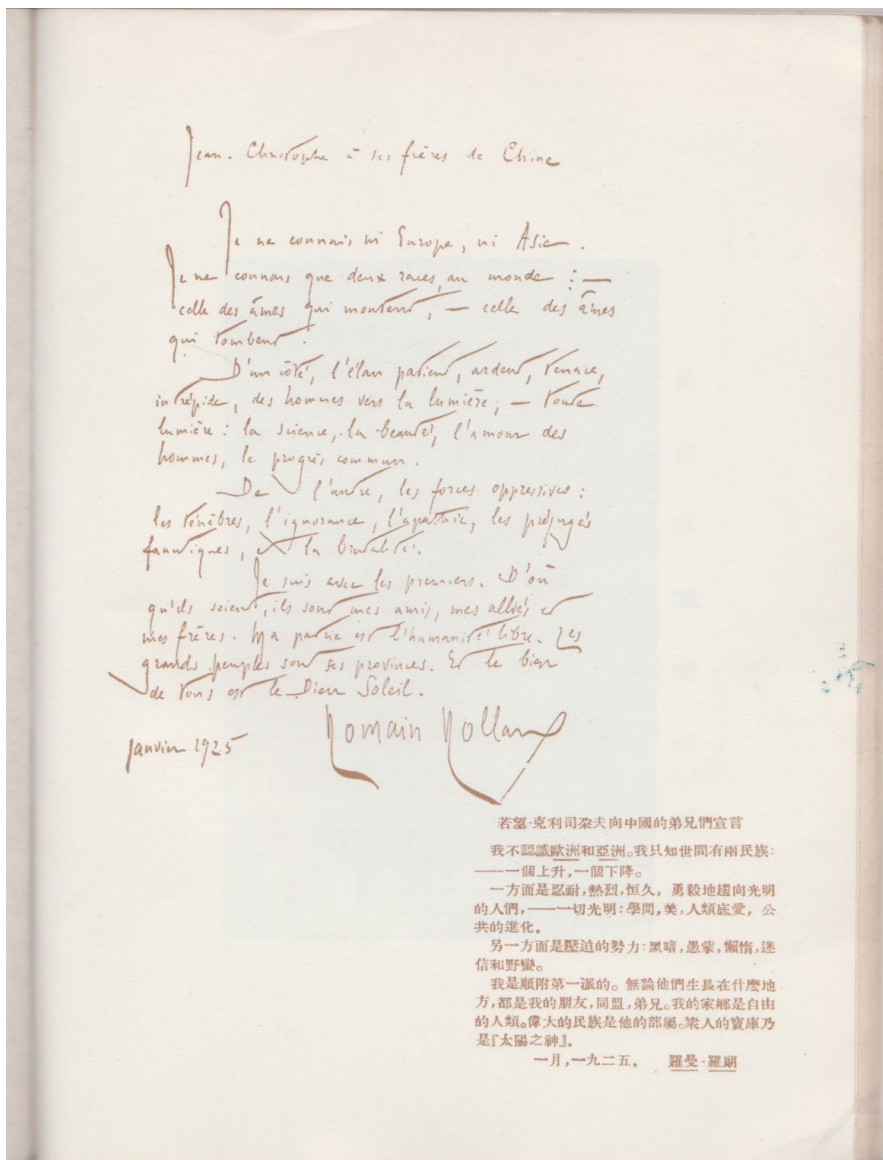 Jean-Christophe à ses frères de Chine
Je ne connais ni Europe, ni Asie.
Je ne connais que deux races, au monde : —
celle des âmes qui montent, — celle des âmes
qui tombent.
D'un côté, l'élan patient, ardent, tenace,
intrépide, des hommes vers la lumière, — toute
lumière : la science, la beauté, l'amour des
hommes, le progrès commun.
De l'autre, les forces oppressives :
les ténèbres, l'ignorance, l'apathie, les préjugés
fanatiques, et la brutalité.
Je suis avec les premiers. D'où
qu'ils soient, ils sont mes amis, mes alliés et
mes frères. Ma patrie est l'humanité libre. Les
grands peuples sont ses provinces. Et le bien
de tous est le Dieu Soleil.
Janvier 1925
Romain Rolland
若望-克利司朶夫向中國的弟兄們宣言
我不認識歐洲和亞洲。我只知世間有兩民族:
——一個上升,一個下降。
一方面是忍耐,熱烈,恒久,勇毅地趨向光明
的人們,——一切光明:學問,美,人類底愛,公
共的進化。
另一方面是壓迫的勢力:黑暗,愚蒙,懶惰,迷
信和野蠻。
我是順附第一派的。無論他們生長在什麼地
方,都是我的朋友,同盟,弟兄。我的家鄉是自由
的人類。偉大的民族是他的部屬。衆人的寶庫乃
是『太陽之神』。
一月,一九二五。 羅曼-羅朗